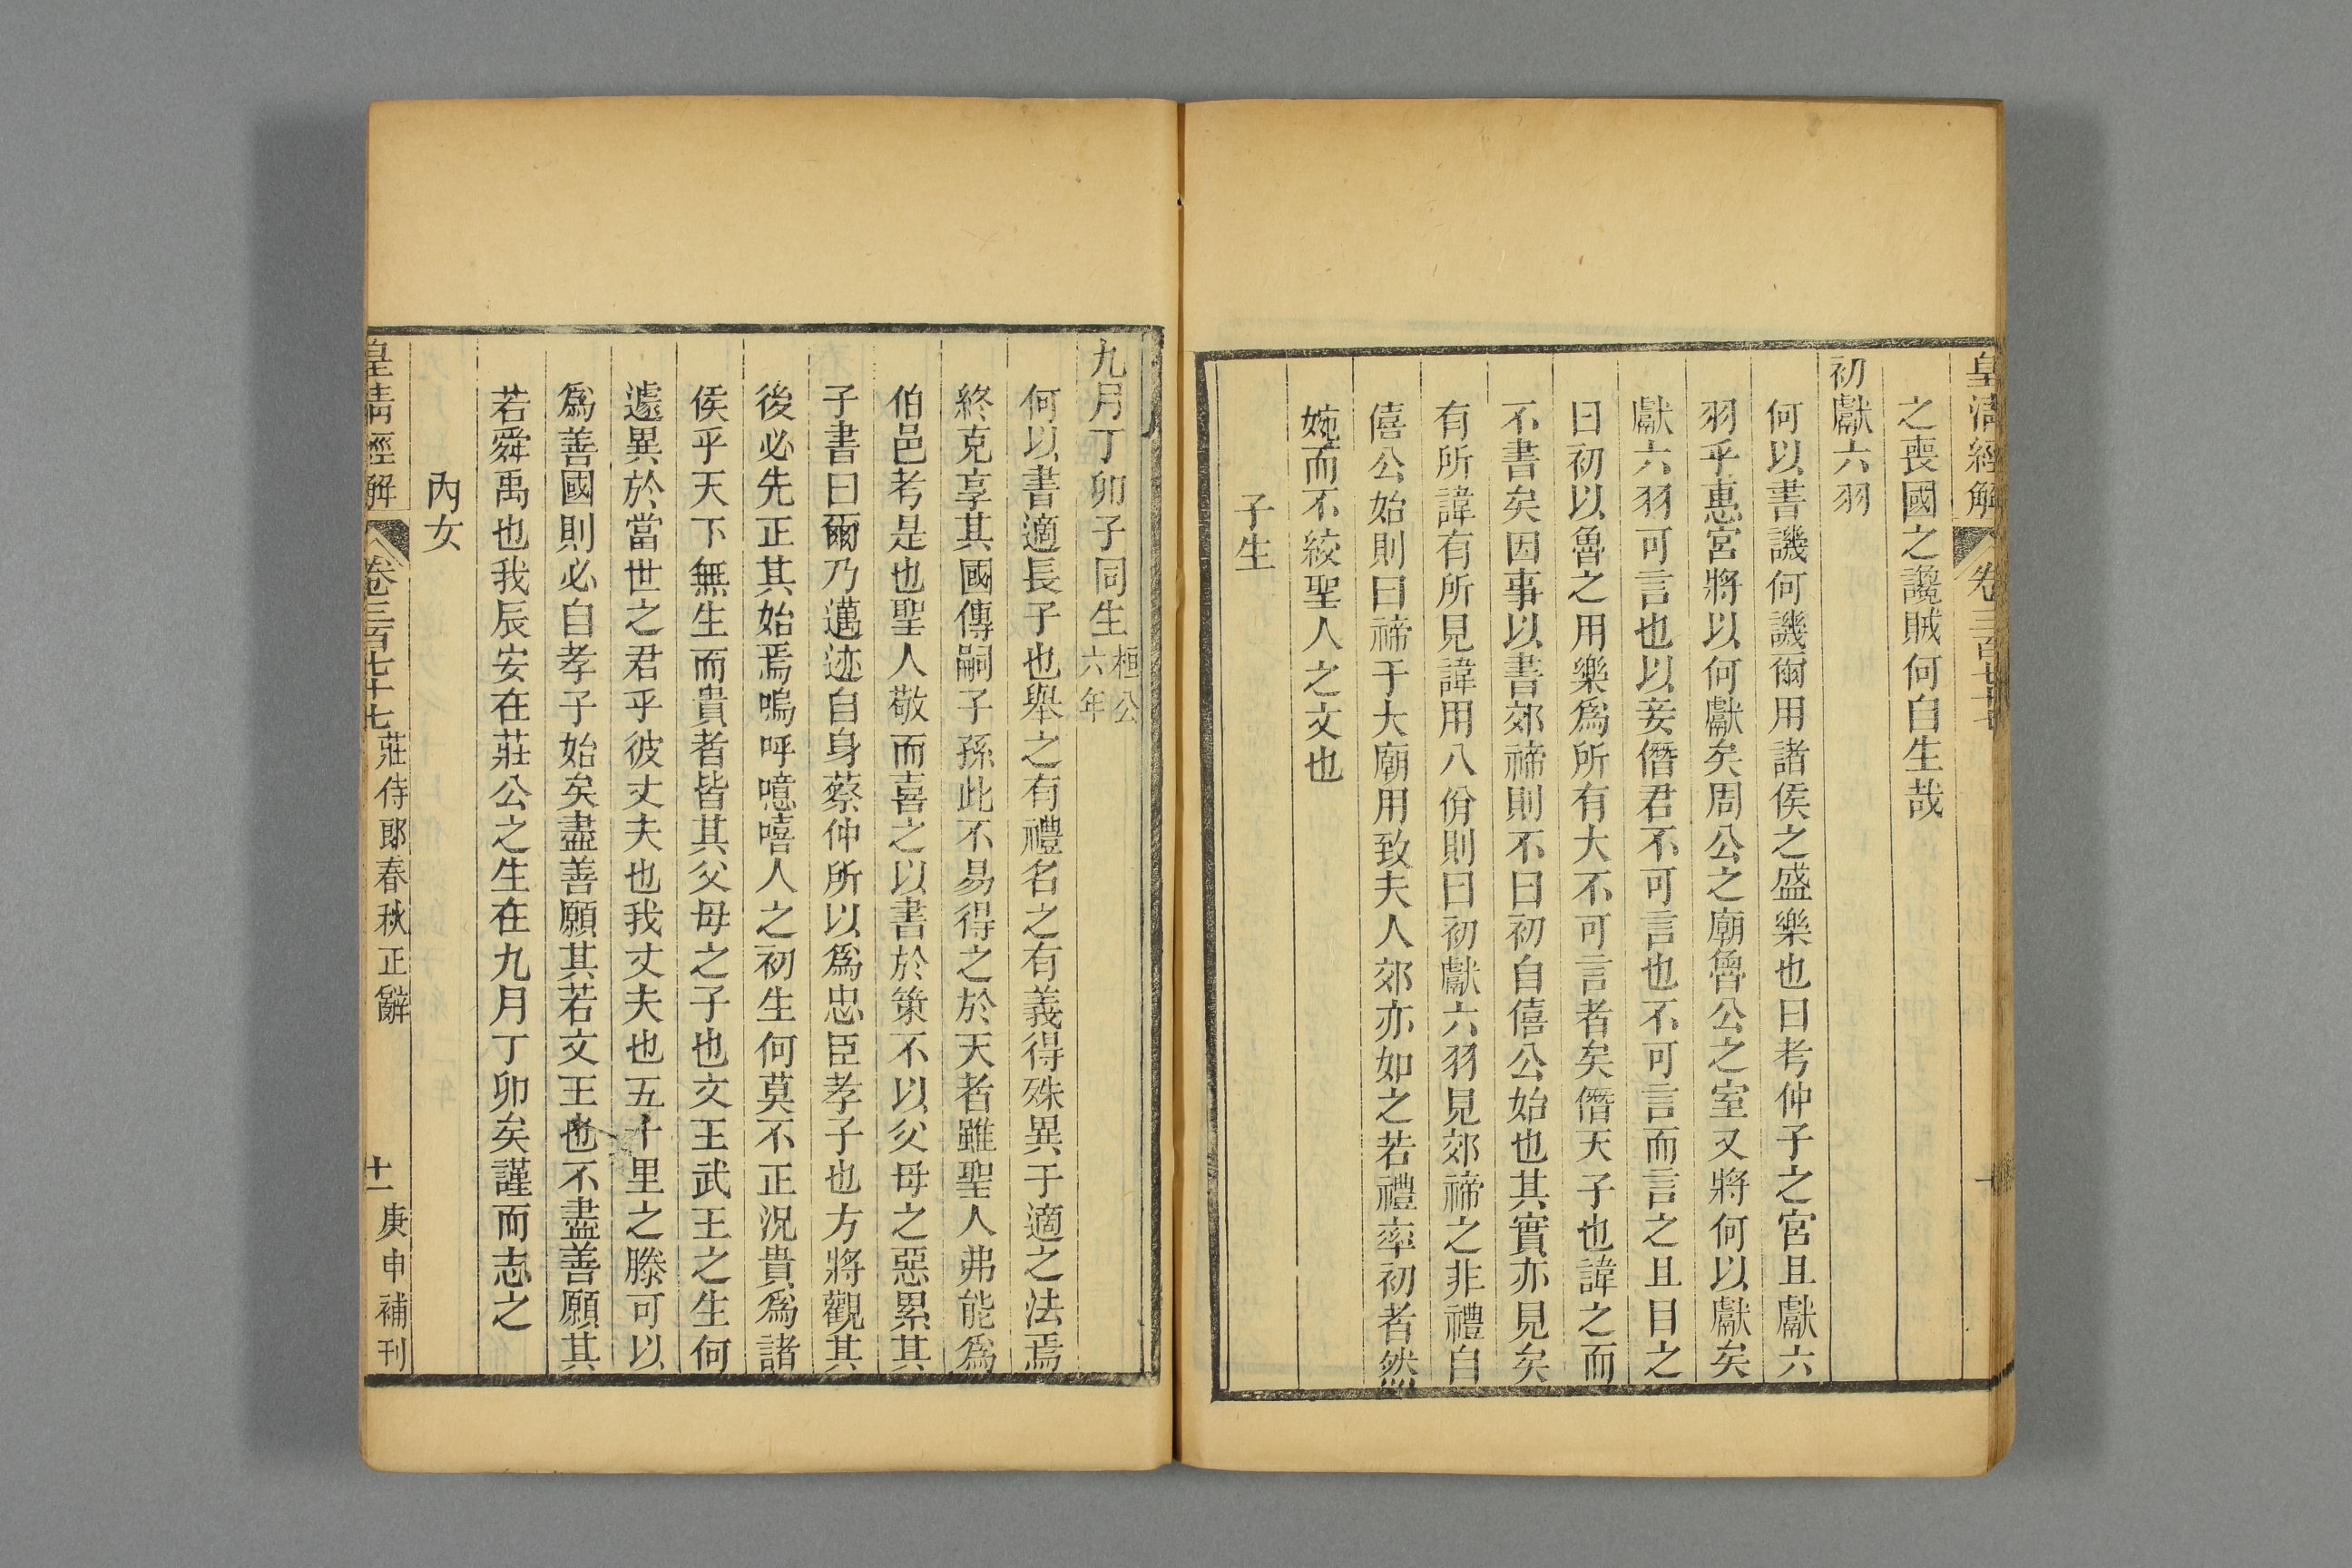 皇清經解 卷三百七十七 十
之喪國之讒賊何自生哉
初獻六羽
何以書譏何譏爾用諸侯之盛樂也曰考仲子之宮且獻六
羽乎惠宮將以何獻矣周公之廟魯公之室又將何以獻矣
獻六羽可言也以妾僭君不可言也不可言而言之且目之
曰初以魯之用樂爲所有大不可言者矣僭天子也諱之而
不書矣因事以書郊禘則不曰初自僖公始也其實亦見矣
有所諱有所見諱用八佾則曰初獻六羽見郊禘之非禮自
僖公始則曰禘于大廟用致夫人郊亦如之若禮率初者然
婉而不絞聖人之文也
子生
九月丁卯子同生 桓公六年
何以書適長子也舉之有禮名之有義得殊異于適之法焉
終克享其國傳嗣子孫此不易得之於天者雖聖人弗能爲
伯邑考是也聖人敬而喜之以書於策不以父母之惡累其
子書曰爾乃邁迹自身蔡仲所以爲忠臣孝子也方將觀其
後必先正其始焉嗚呼噫嘻人之初生何莫不正況貴爲諸
侯乎天下無生而貴者皆其父母之子也文王武王之生何
遽異於當世之君乎彼丈夫也我丈夫也五十里之滕可以
爲善國則必自孝子始矣盡善願其若文王也不盡善願其
若舜禹也我辰安在莊公之生在九月丁卯矣謹而志之
內女
皇清經解 卷三百七十七 莊侍郎春秋正辭 十一 庚申補刊